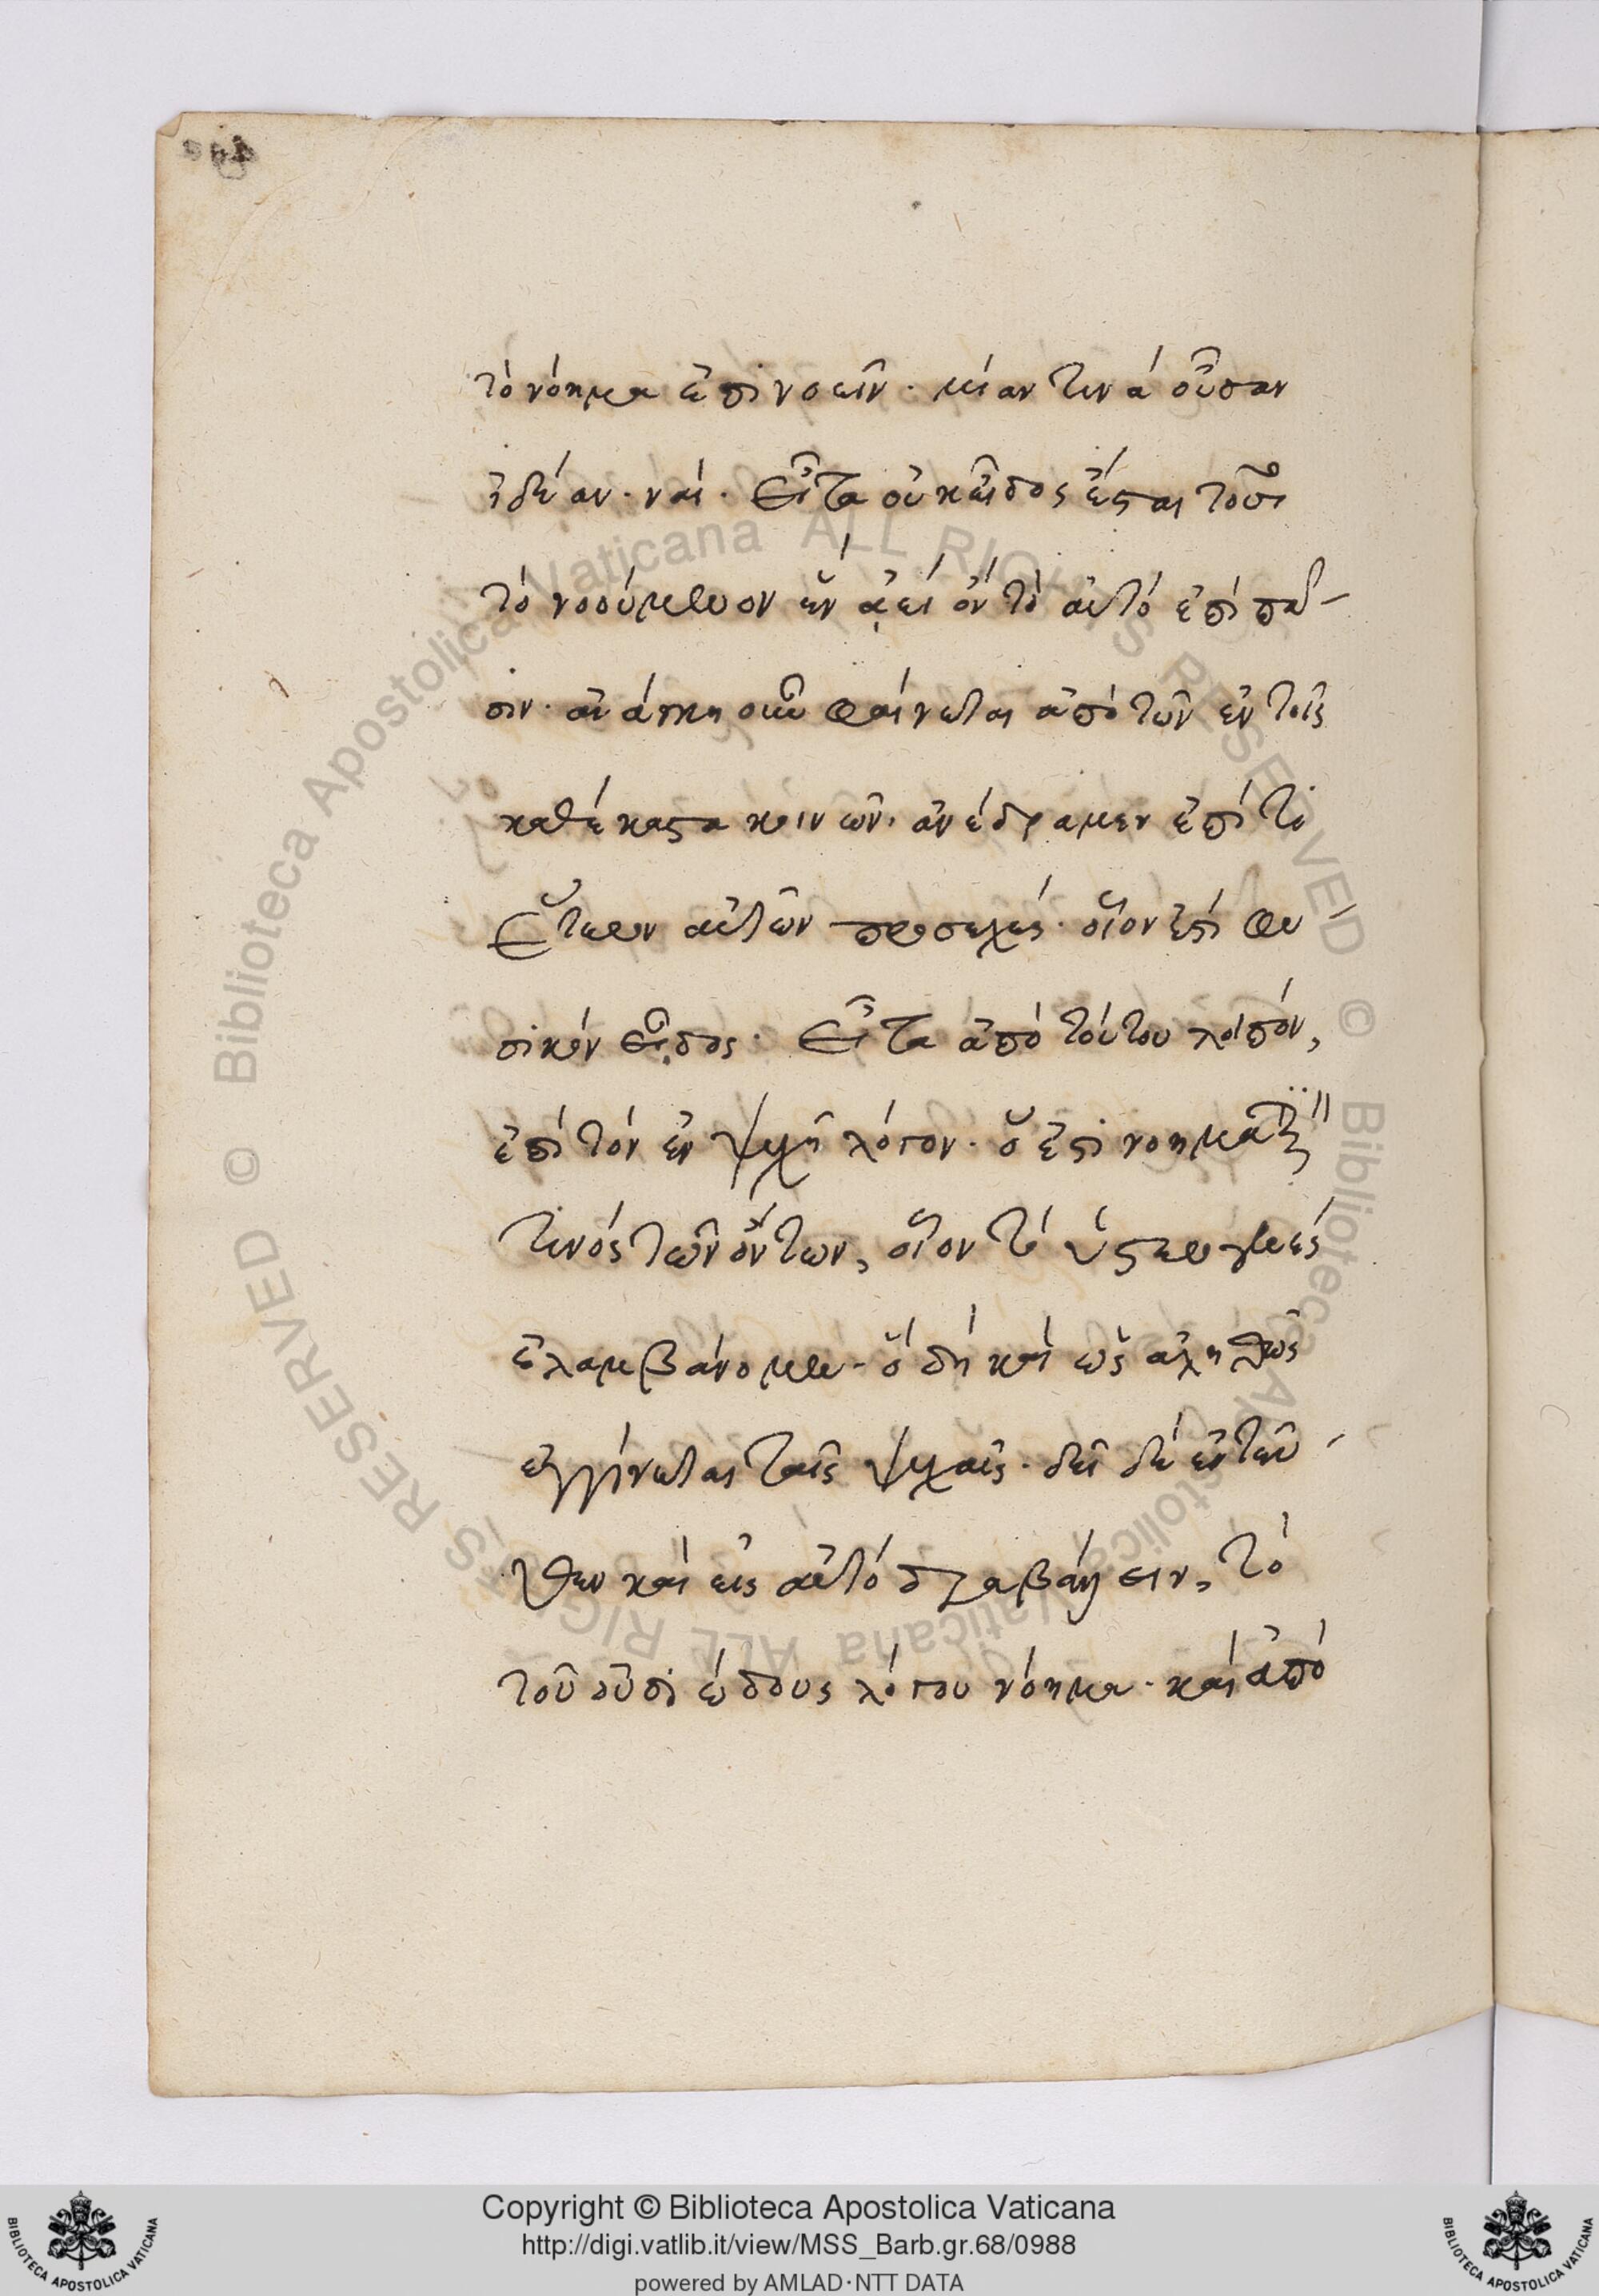 τὸ νόημα ἐπινοεῖν· μίαν τινὰ οὖσαν
ἰδέαν· ναί· Εἶτα οὐκ εἶδος ἔσται τοῦτο
τὸ νοούμενον ἓν ἀεὶ ὂν τὸ αὐτὸ ἐπὶ πᾶ-
σιν· ἀνάγκη οὖν φαίνεται ἀπὸ τῶν ἐν τοῖς
καθέκαστα κοινῶν, ἀνέδραμεν ἐπὶ τὸ
ἕτερον αὐτῶν προσεχές· οἷον ἐστὶ φυ-
σικὸν εἶδος· Εἶτα ἀπὸ τούτου λοιπόν,
ἐπὶ τὸν ἐν ψυχῇ λόγον· ὅ ἐστι νόημα
τινὸς τῶν ὄντων, οἷον τὸ ὑστερογενὲς
ἐλαμβάνομεν· ὃ δὴ καὶ ὡς ἀληθῶς
ἐγγίνεται ταῖς ψυχαῖς· δεῖ δὲ ἐντεῦ-
θεν καὶ εἰς αὐτὸ διαβαίνειν, τὸ
τοῦ οὐσιώδους λόγου νόημα· καὶ ἀπὸ
Copyright © Biblioteca Apostolica Vaticana
http://digi.vatlib.it/view/MSS_Barb.gr.68/0988
powered by AMLAD·NTT DATA
BIBLIOTECA APOSTOLICA VATICANA
BIBLIOTECA APOSTOLICA VATICANA
© Biblioteca Apostolica Vaticana ALL RIGHTS RESERVED
© Biblioteca Apostolica Vaticana ALL RIGHTS RESERVED